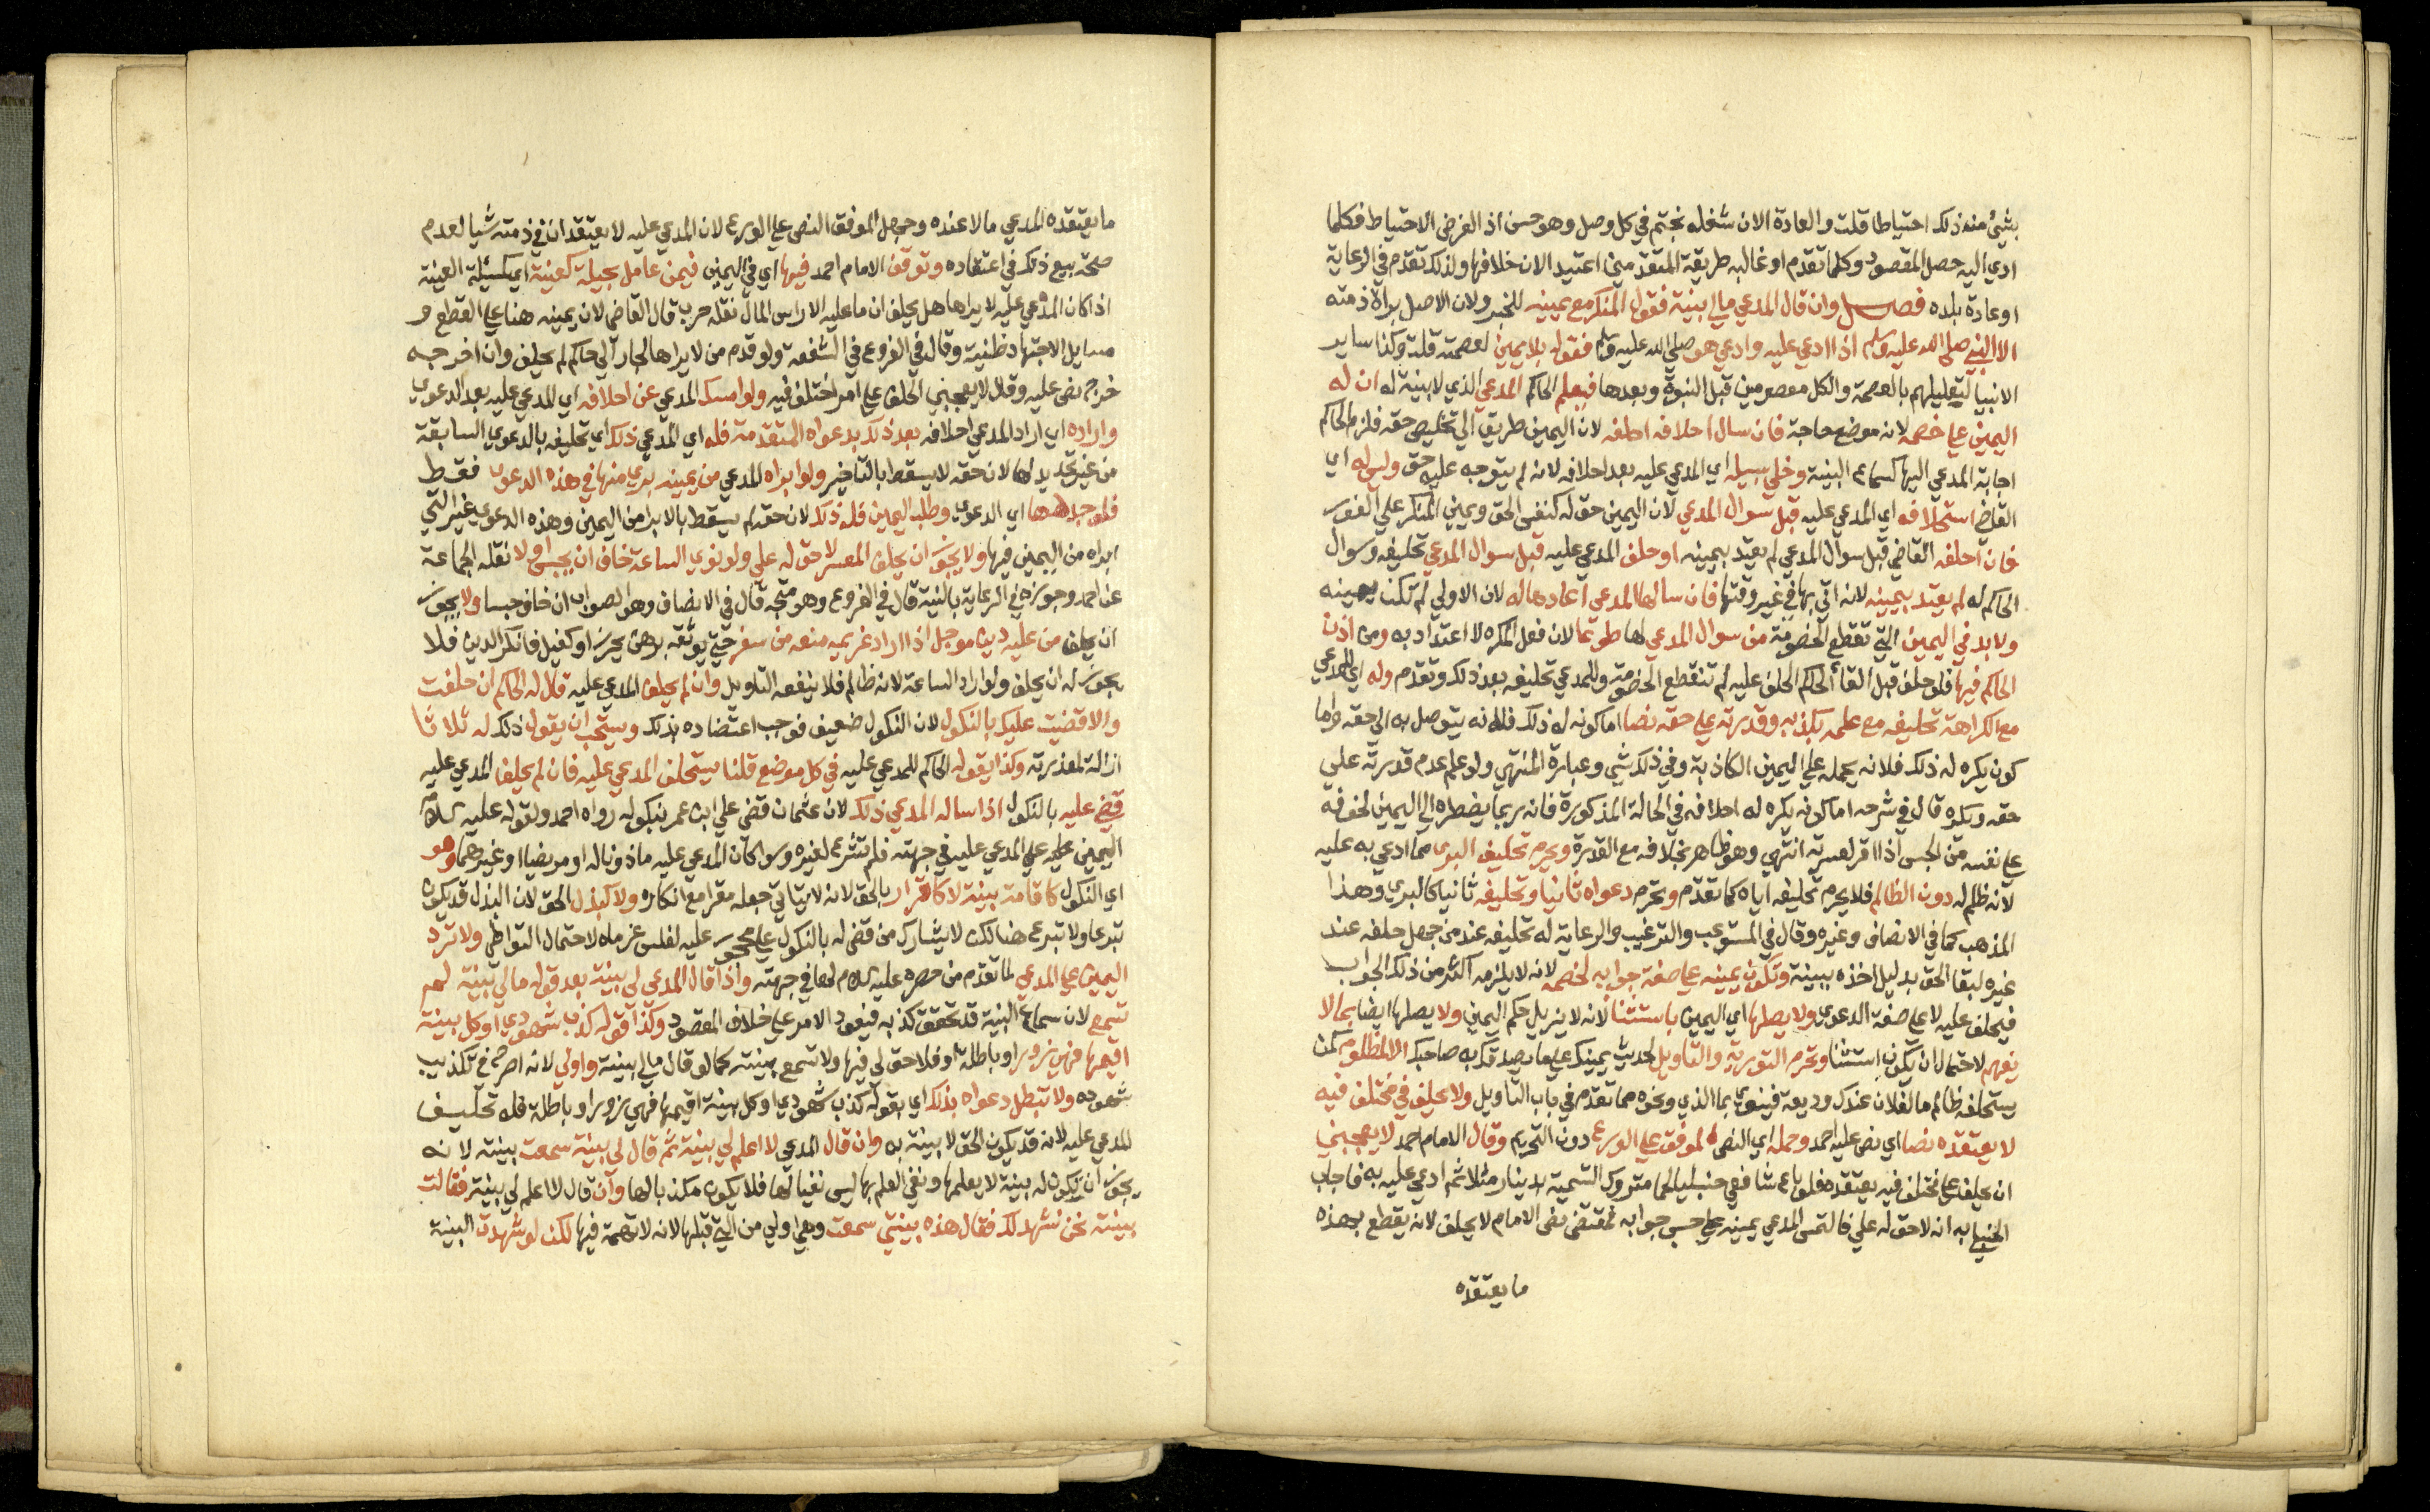 بشيء منه ذلك احتياطا قلت والعادة الان شغله بختم في كل وصل وهو حسن اذ الغرض الاحتياط فكلما
ادي اليه حصل المقصود وكلما تقدم او غالبه طريقة المتقدمين اعتيد الان خلافها ولذلك تقدم في الرعاية
او عادة بلده فصل وان قال المدعي مالي بينة فقول المنكر مع يمينه للخبر ولان الاصل براة ذمته
الا النبي صلى الله عليه وسلم اذا ادعي عليه او ادعى هو صلى الله عليه وسلم فقوله بلا يمين لعصمته قلت وكذا ساير
الانبيا لتعليلهم بالعصمة والكل معصومين قبل النبوة وبعدها فيعلم الحاكم المدعي الذي لا بينة له ان له
اليمين على خصمه لانه موضع حاجة فان سال احلافه احلفه لان اليمين طريق الي تخليص حقه فلزم الحاكم
اجابة المدعي اليها كسماع البينة وخلي سبيله اي المدعي عليه بعد احلافه لانه لم يتوجه عليه حق وليس له اي
القاضي استحلافه اي المدعي عليه قبل سوال المدعي لان اليمين حق له كنفس الحق ويمين المنكر على الفور
فان احلفه القاضي قبل سوال المدعي لم يعتد بيمينه او حلف المدعي عليه قبل سوال المدعي تحليفه وسوال
الحاكم له لم يعتد بيمينه لانه اتي بها في غير وقتها فان سالها المدعي اعادها له لان الاولي لم تكن يمينه
ولا بد في اليمين التي تقطع الخصومة من سوال المدعي لها طوعا لان فعل المكره لا اعتداد به ومن اذن
الحاكم فيها فلو حلف قبل القا الحاكم الحلف عليه لم تنقطع الخصومة وللمدعي تحليفه بعد ذلك وتقدم وله اي المدعي
مع الكراهة تحليفه مع علمه بكذبه وقدرته على حقه نصا اما كونه له ذلك فلانه يتوصل به الى حقه واما
كون يكره له ذلك فلانه يحمله على اليمين الكاذبة وفي ذلك شي وعبارة المنتهي ولو علم عدم قدرته علي
حقه ويكره قال في شرحه اما كونه يكره له احلافه في الحالة المذكورة فانه ربما يضطره الى اليمين لخوفه
على نفسه من الحبس اذا اقر لعسرته انتهي وهو ظاهر بخلافه مع القدرة ويحرم تحليف البري مما ادعي به عليه
لانه ظلم له دون الظالم فلا يحرم تحليفه اياه كما تقدم وتحرم دعواه ثانيا وتحليفه ثانيا كالبري وهذا
المذهب كما في الانصاف وغيره وقال في المستوعب والترغيب والرعاية له تحليفه عند من جهل حلفه عند
غيره لبقا الحق بدليل اخذه ببينة وتكون يمينه على صفة جوابه لخصمه لانه لا يلزمه اكثر من ذلك الجواب
فيحلف عليه لا على صفة الدعوي ولا يصلها اي اليمين باستثنا لانه لا يزيل حكم اليمين ولا يصلها ايضا بما لا
يفهم لاحتمال ان يكون استثنا وتحرم التورية والتاويل لحديث يمينك على ما يصدقك به صاحبك الا لمظلوم كمن
يستحلفه ظالم ما لفلان عندك وديعة فينوي بما الذي ونحوه مما تقدم في باب التاويل ولا يحلف في مختلف فيه
لا يعتقده نصا اي نص عليه احمد وحمله اي النص الموفق على الورع دون التحريم وقال الامام احمد لا يعجبني
ان يحلف على مختلف فيه يعتقده فلو باع شافعي حنبليا لحما متروك التسمية بدينار مثلا ثم ادعي عليه به فاجاب
الحنبلي به انه لا حق له علي فالتمس المدعي يمينه على حسب جوابه فمقتضى نص الامام لا يحلف لانه يقطع بهذه
ما يعتقده
ما يعتقده المدعي مالا عنده وحمل الموفق النص على الورع لان المدعي عليه لا يعتقد ان في ذمته شيا لعدم
صحة بيع ذلك في اعتقاده وتوقف الامام احمد فيها اي في اليمين فيمن عامل بحيلة كعينة اي كمسئلة العينة
اذا كان المدعي عليه لا يراها هل يحلف ان ما عليه الا راس المال نقله حرب قال القاضي لان يمينه هنا على القطع و
مسايل الاجتهاد ظنية وقال في الفروع في الشفعة ولو قدم من لا يراها لجار الي حاكم لم يحلف وان اخرجه
خرج نص عليه وقال لا يعجبني الحلف على امر اختلف فيه ولو امسك المدعي عن احلافه اي المدعي عليه بعد الدعوي
واراده اي اراد المدعي احلافه بعد ذلك بدعواه المتقدمة فله اي المدعي ذلك اي تحليفه بالدعوي السابقة
من غير تجديدها لان حقه لا يسقط بالتاخير ولو ابراه المدعي من يمينه بري منها في هذه الدعوى فقط
فلو جددها اي الدعوي وطلب اليمين فله ذلك لان حقه لم يسقط بالابرا من اليمين وهذه الدعوي غير التي
ابراه من اليمين فيها ولا يجوز ان يحلف المعسر لا حق له علي ولو نوي الساعة خاف ان يحبس او لا نقله الجماعة
عن احمد وجوزه في الرعاية بالنية قال في الفروع وهو متجه قال في الانصاف وهو الصواب ان خاف حبسا ولا يجوز
ان يحلف من عليه دين موجل اذا اراد غريمه منعه من سفر حتي يوثقه برهن يحرز او كفيل فانكر الدين فلا
يجوز له ان يحلف ولو اراد الساعة لانه ظالم فلا ينفعه التاويل وان لم يحلف المدعي عليه قال له الحاكم ان حلفت
والا قضيت عليك بالنكول لان النكول ضعيف فوجب اعتضاده بذلك ويستحب ان يقول ذلك له ثلاثا
ازالة لمعذرته وكذا يقوله الحاكم للمدعي عليه في كل موضع قلنا يستحلف المدعي عليه فان لم يحلف المدعي عليه
قضي عليه بالنكول اذا ساله المدعي ذلك لان عثمان قضي على ابن عمر بنكوله رواه احمد ولقوله عليه السلام
اليمين على المدعي عليه في جهته فلم تشرع لغيره وسوا كان المدعي عليه ماذونا له او مريضا او غيرهما وهو
اي النكول كاقامة بينة لا كاقرار بالحق لانه لا يتاتي جعله مقرا مع انكاره ولا كبذل الحق لان البذل قد يكون
تبرعا ولا تبرع هنا لكن لا يشارك من قضي له بالنكول على محجور عليه لفلس غرماه لاحتمال التواطي ولا ترد
اليمين على المدعي لما تقدم من حصره عليه السلام لها في جهته واذا قال المدعي لي بينة بعد قوله مالي بينة لم
تسمع لان سماع البينة قد تحقق كذبه فيعود الامر على خلاف المقصود وكذا قوله كذب شهودي او كل بينة
اقيمها فهي زور او باطلة او فلا حق لي فيها ولا تسمع بينته كما لو قال مالي بينة واولي لانه اصرح في تكذيب
شهوده ولا تبطل دعواه بذلك اي بقوله كذب شهودي او كل بينة اقيمها فهي زور او باطلة فله تحليف
المدعي عليه لانه قد يكون الحق لا بينة به وان قال المدعي لا اعلم لي بينة ثم قال لي بينة سمعت بينته لانه
يجوز ان تكون له بينة لا يعلمها ونفي العلم بها ليس نفيا لها فلا يكون مكذبا لها وان قال لا اعلم لي بينة فقالت
بينة نحن نشهد لك فقال هذه بينتي سمعت وهي اولي من التي قبلها لانه لا تهمة فيها لكن لو شهدت البينة